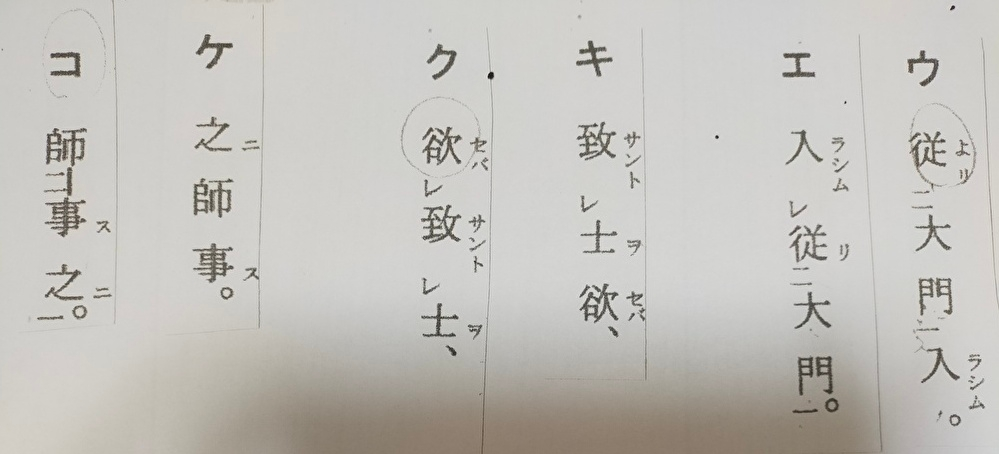 ウ 従よリ二大門一入ラシム。
エ 入ラシムレ従リ二大門一。
キ 致サントレ士ヲ欲セバ、
ク 欲セバレ致サントレ士ヲ、
ケ 之ニ師事ス。
コ 師二-事ス之ニ一。